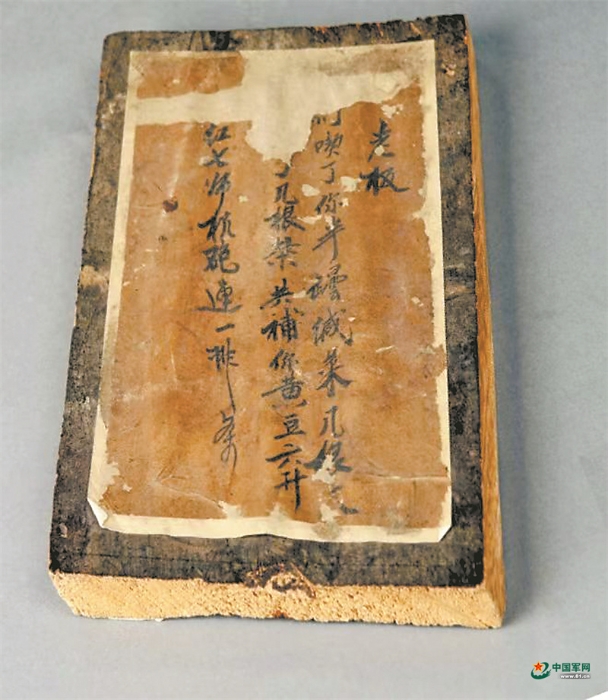 老板
喫了你半罈缄菜几根
几根柴共补你黄豆六升
红七师机炮连一排 条
中国军网
www.81.cn